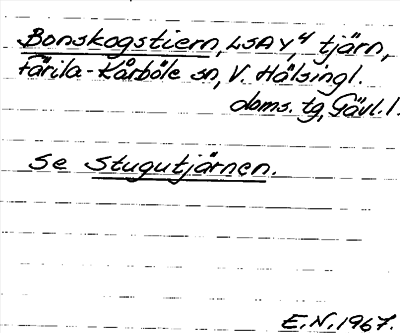 Bonskogstiern, LSAY⁴, tjärn,
Färila-Kårböle sn, V. Hälsingl.
doms. tg, Gävl. l.
Se Stugutjärnen.
E.N. 1967.